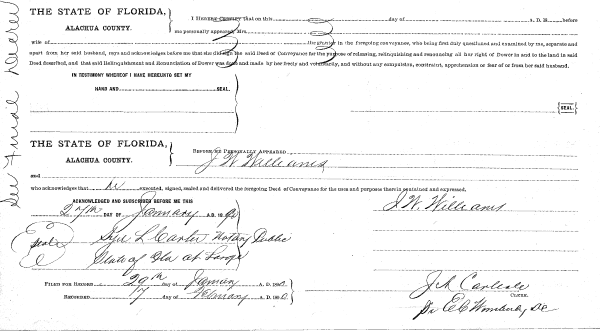 THE STATE OF FLORIDA,
ALACHUA COUNTY.
I HEREBY CERTIFY that on this day of A. D. 18 before
me personally appeared, Mrs.
wife of the grantor in the foregoing conveyance, who being first duly questioned and examined by me, separate and
apart from her said husband, says and acknowledges before me that she the said Deed of Conveyance for the purpose of releasing, relinquishing and renouncing all her right of Dower in and to the land in said
Deed described, and that said Relinquishment and Renunciation of Dower was done and made by her freely and voluntarily, and without any compulsion, constraint, apprehension or fear of or from her said husband.
IN TESTIMONY WHEREOF I HAVE HEREUNTO SET MY
HAND AND SEAL.
[SEAL.]
THE STATE OF FLORIDA,
ALACHUA COUNTY.
BEFORE ME PERSONALLY APPEARED
J. W. Williams
and
who acknowledges that he executed, signed, sealed and delivered the foregoing Deed of Conveyance for the uses and purposes therein contained and expressed.
ACKNOWLEDGED AND SUBSCRIBED BEFORE ME THIS
27th DAY OF January A. D. 18
J. W. Williams
Seal L Carter Notary Public
State of Fla at Large
FILED FOR RECORD 29th day of January A. D. 18
RECORDED 17 day of February A. D. 18
J A Carlisle
CLERK.
E C Wimberly DC
See Final Decree